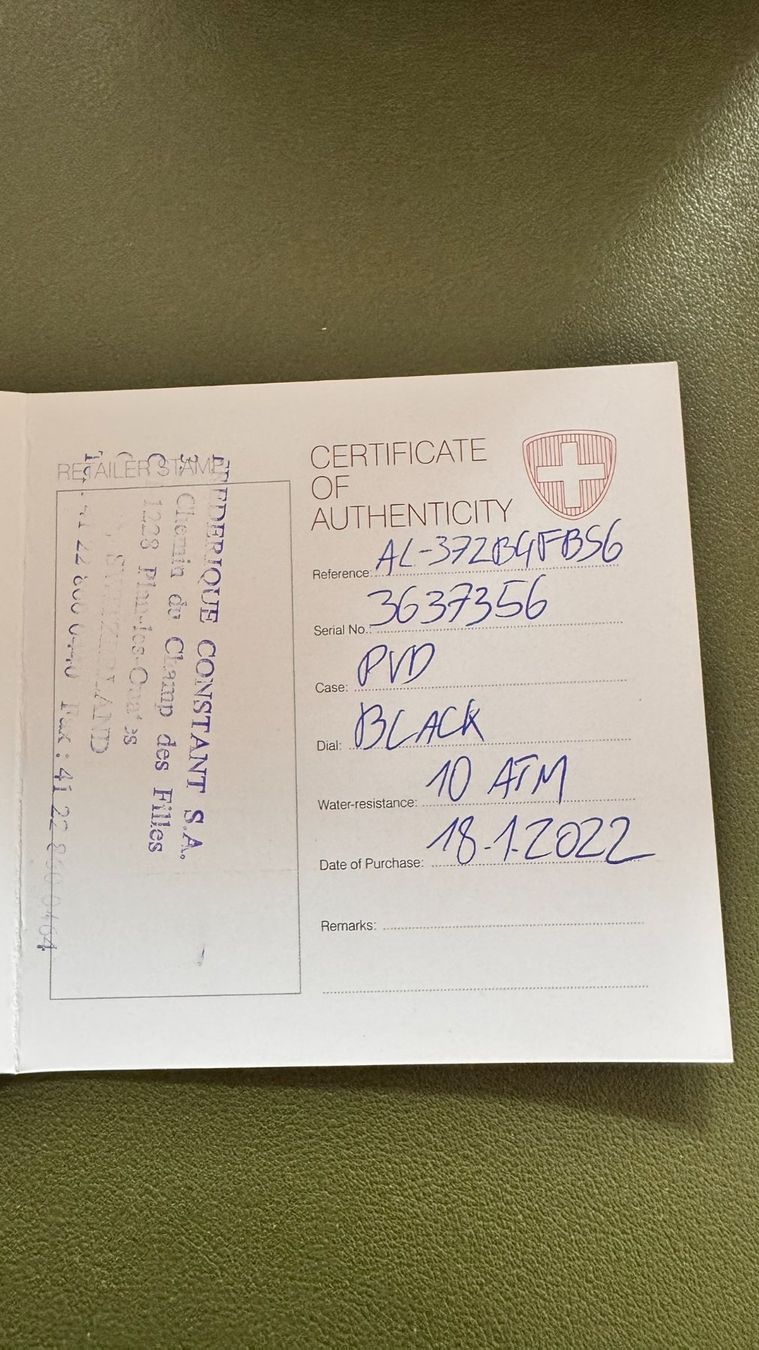 RETAILER STAMP
FREDERIQUE CONSTANT S.A.
Chemin du Champ des Filles
1228 Plan-les-Ouates
SWITZERLAND
Fax : 41 22 860 0464
CERTIFICATE
OF
AUTHENTICITY
Reference: AL-372B4FBS6
Serial No.: 3637356
Case: PVD
Dial: BLACK
Water-resistance: 10 ATM
Date of Purchase: 18.1.2022
Remarks: